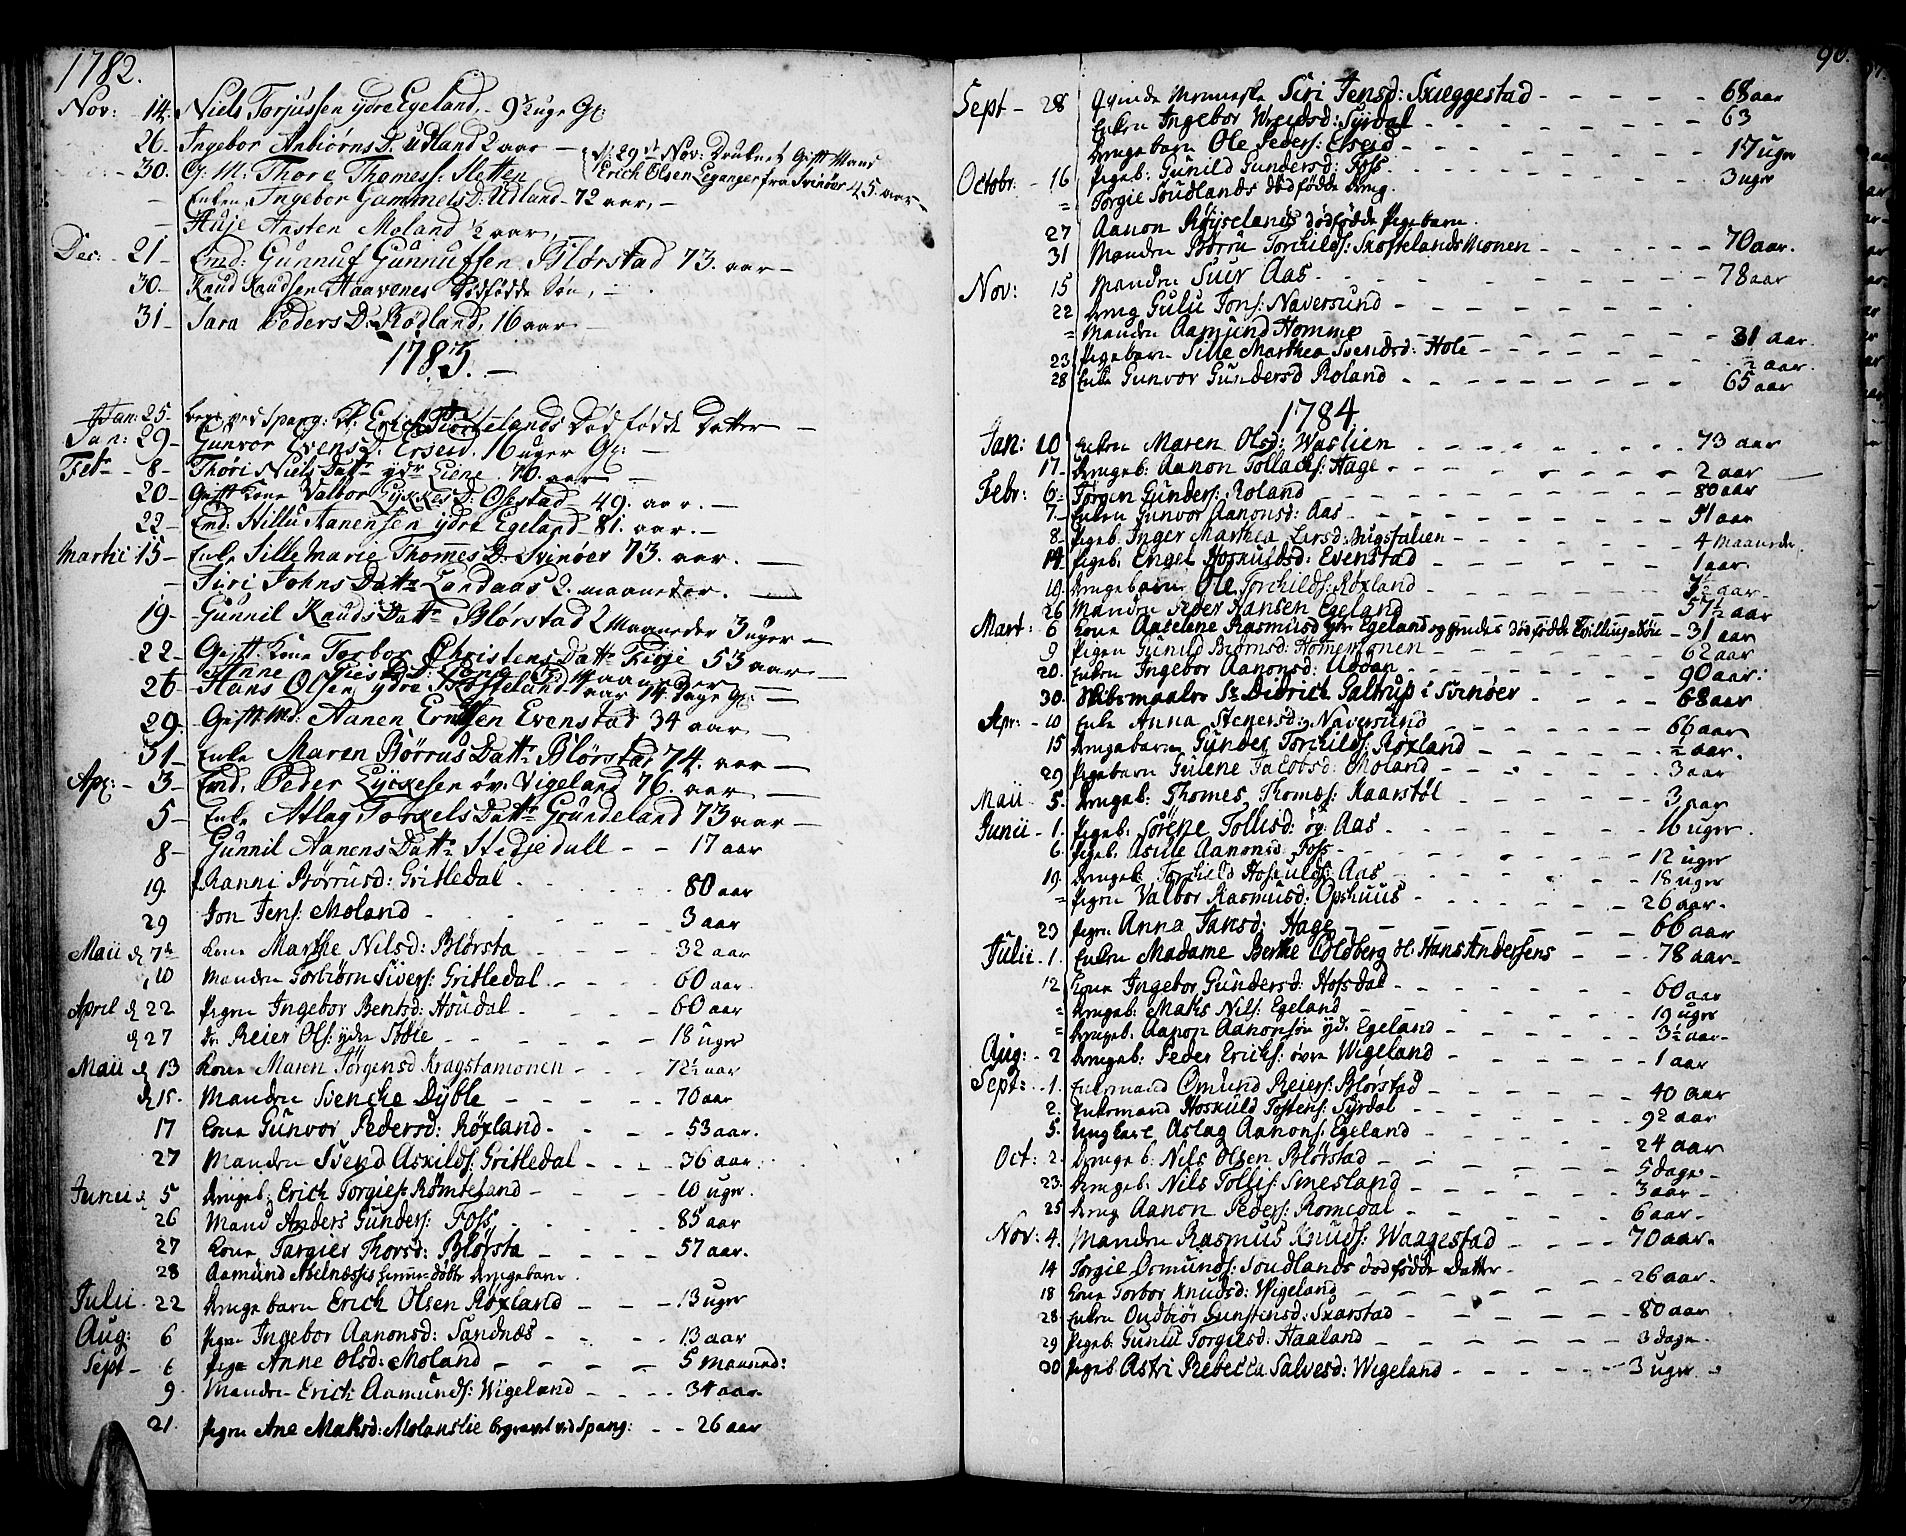 1782.
Nov: 14. Niels Torjussen ydre Egeland. 9½ uge G:
26. Ingebor Anbiørns D. Udland 2 aar —
d: 29de Nov: Druknet Gift Mand
30. G: M: Thore Thomess: Sletten
Erich Olsen Leganger fra Svinøer 45 aar
— Enken Ingebor Gammels D: Udland - 72 aar, —
— Huje Ansten Moland ½ aar, —
Dec: 21 — Emd: Gunnuf Gunnufsen Blørstad 73. aar —
30 — Knud Knudsen Haavenes Dødfødde Søn, —
31 — Sara Peders D: Rødland, 16 aar —
1783. —
Jan: 25 — begr. ved Spang: Erich Dødfødde Datter —
Jan: 29 — Gunvor Evens D. Erseid. 16 uger G: —
Feb — 8 — Thori Niels Datr ydr Eiene 70. aar —
20 — Gift Kone Valbor Lyckes D: Osestad 49. aar. —
22 — Emd: Hillu Aanensen ydre Egeland 81. aar. —
Martii 15 — Enke Sille Marie Thomes D: Svinøer 73. aar. —
— Siri Johns Datr Landaas 2. maaneder. —
19 — Gunnil Knuds Datr Blørstad 2 Maaneder 3 uger —
22 — Gift Kone Torbor Christens Datr Kioje 53 aar —
Anne D: maaneder —
26 — Hans Olsen ydre Skoffeland aar 14 dage G: —
29. Gift Md: Aanen Ernstsen Evenstad 34 aar —
31 — Enke Maren Børrus Datr Blørstad 74. aar —
Apr: — 3 — Emd. Peder Lyckesen øv. Vigeland 76. aar —
5 — Enke Aslag Torkels Datr Grundeland 73 aar —
8 — Gunnil Aanens Datr Stedjedall - - 17 aar
19. Ranni Børrusd: Gritledal - - - 80 aar
29 Jon Jens: Moland - - - 3 aar
Maii d 7de Kone Marthe Nilsd: Blørsta - - - 32 aar
10 Manden Torbiørn Sivers: Gritledal - - - 60 aar
April d 22 Pigen Ingebor Bentsd: Houdal - - - 60 aar
d 27 Dr: Reier Ols: ydre Støle - - - 18 uger
Maii d 13 Kone Maren Jørgensd Kragstamonen - - - 72½ aar
d 15. Manden Svencke Dyble - - - 70 aar
17 Kone Gunvor Pedersd: Røxland - - - 53 aar.
27 Manden Svend Askilds: Gritledal - - - 36 aar
Junii d 5 Drengeb: Erich Torgies: Rømteland - - - 10 uger.
26 Mand Anders Gunders: Foss - - - 85 aar
27 Kone Targier Thorsd: Blørsta - - - 57 aar.
28 Aamund Abelnæssis hiemme døbte Drengebarn.
Julii 22 Drenge barn Erich Olsen Røxland - - - 13 uger
Aug: 6 Pigen Ingebor Aanonsd: Sandnæs - - - 13 aar
Sept - 6 Pige Anne Olsd: Moland - - - 5 Maaned:
9. Manden Erich Aamunds: Wigeland - - - 34 aar
21. Pigen Ane Maksd: Molanslie begravet ved Spang: - - 26 aar
90.
Sept - 28 Qvinde Menneske Siri Jensd: Skieggestad - - - 68 aar
Enken Ingebor Wreidsd: Syrdal - - - 63
Drengebarn Ole Peders: Erseid - - - 17 uger
Octobr: - 16 Pigeb: Gunild Gundersd: Foss - - - 3 uger
= Torgie Soudlands dødfødde Dreng.
27 Aanon Røyselands dødfødde Pigebarn.
31 Manden Børru Torchilds: Skoffelands Monen - - - 70 aar.
Nov: 15 Manden Siur Aas - - - 78 aar
22 Dreng Gulu Jons: Naversund - - -
= Manden Aamund Homme - - - 31 aar.
23 Pigebarn Sille Marthea Svendsd: Hole - - - ½ aar.
28 Enke Gunvor Gundersd Roland - - - 65 aar
1784
Jan: 10 Enken Maren Olsd: Waslien - - - 73 aar
17. Drengeb: Aanon Tollachs: Hage - - - 2 aar
Febr: 6 - Jørgen Gunders: Roland - - - 80 aar
7 - Enken Gunvor Aanonsd: Aas - - - 51 aar
8 - Pigeb. Inger Marthea Larsd: - - - 4 Maaneder.
14. Pigeb: Engel Hoskuldsd: Evenstad - - - 1 aar.
19. Drengebarn Ole Torchilds: Røxland - - - aar -
26 Manden Peder Hansen Egeland - - - 57½ aar
Mart: 6 Kone Aaselene Rasmusd ydr Egeland og hendes dødfødde Tvillinge Børn - 31 aar
9 Pigen Gunild Biørnsd: Homersonen - - - 62 aar
20. Enken Ingebor Aanonsd: Uddan - - - 90 aar.
30. Skibsmaaler Sr Didrich Galtrup i Svinøer - - - 68 aar
Apr: - 10 Enke Anna Stenersd: Naversund - - - 66 aar
15 Drengebarn Gunder Torchilds: Røxland - - - ½ aar.
29 Pigebarn Gulene Jacobsd: Moland - - - 3 aar
Maii 5. Drengeb: Thomes Thomæs: Kaarstøl - - - 3 aar
Junii - 1. Pigeb: Sørene Tollisd: øv: Aas - - - 16 uger.
6. Pigeb. Asille Aanonsd: Foss - - - 12 uger
19. Drengeb: Torchild Hoskulds: Aas - - - 18 uger
= Pigen Valbor Rasmusd: Opshuus - - - 26 aar.
23 Pigen Anna Jansd: Hage - - - 66 aar
Julii - 1. Enken Madame Berthe Coldberg Sl: Hans Andersens - - - 78 aar -
12 Kone Ingebor Gundersd: Hofsdal - - - 60 aar
= Drengeb: Maks Nils: Egeland - - - 19 uger
= Drengeb. Aanon Aanonsøn yd: Egeland - - - 3½ aar -
Aug: - 2 Drengeb: Peder Erichs: øvre Wigeland - - - 1 aar
Sept: - 1. Enkemand Omund Reiers: Blørstad - - - 40 aar
2. Enkemand Hoskuld Tostens: Syrdal - - - 92 aar
5. Ungkarl Aslag Aanons: Egeland - - - 24 aar
Oct: 2. Drengeb: Nils Olsen Blørstad - - - 5 dage -
23. Drengeb: Nils Tollis: Smesland - - - 3 aar -
25 Dreng Aanon Peders: Romedal - - - 6 aar -
Nov: 4. Manden Rasmus Knuds: Waagestad - - - 70 aar.
14 Torgie Osmunds: Soudlands dødfødde Datter - - -
18 Kone Torbor Knudsd: Wigeland - - - 26 aar.
28. Enken Oudbiør Gunstensd: Skarstad - - - 80 aar
29 Pigeb: Gunlu Torgiesd: Haaland - - - 3 dage.
30 Pigeb: Astri Rebecca Salvesd: Wigeland - - - 3 uger.